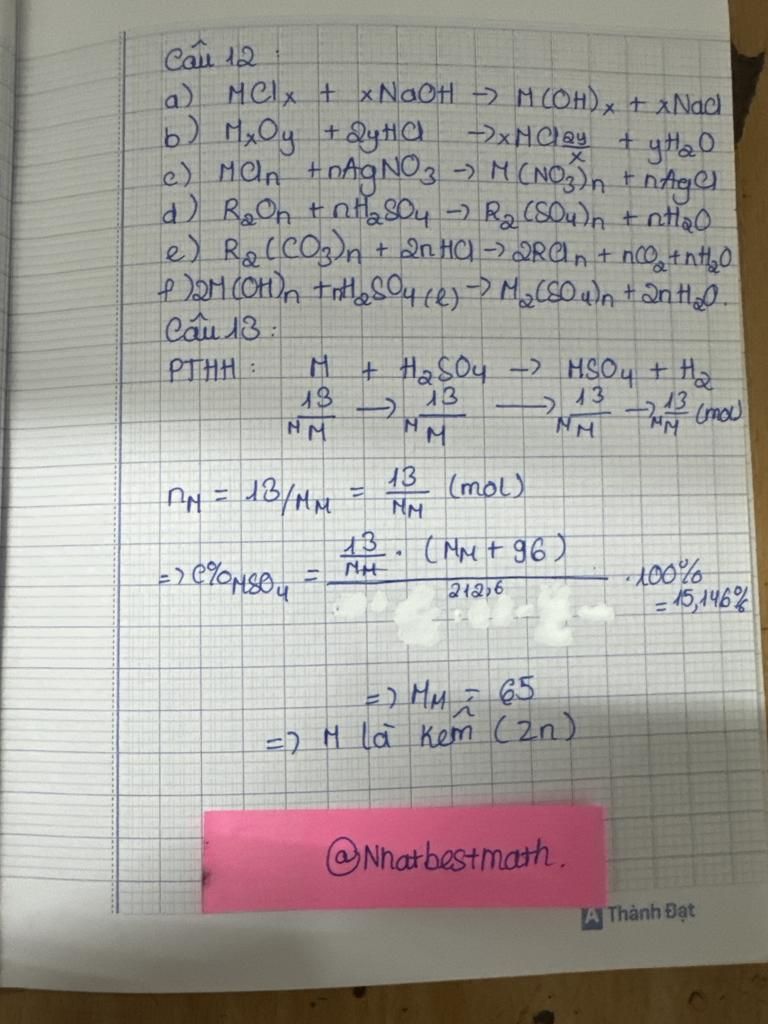 Câu 12 :
a) MClₓ + xNaOH → M(OH)ₓ + xNaCl
b) MₓOy + 2yHCl → xMCl2y/x + yH₂O
c) MCln + nAgNO₃ → M(NO₃)n + nAgCl
d) R₂On + nH₂SO₄ → R₂(SO₄)n + nH₂O
e) R₂(CO₃)n + 2nHCl → 2RCln + nCO₂ + nH₂O
f) 2M(OH)n + nH₂SO₄(l) → M₂(SO₄)n + 2nH₂O.
Câu 13 :
PTHH : M + H₂SO₄ → MSO₄ + H₂
13/M_M → 13/M_M → 13/M_M → 13/M_M (mol)
n_M = 13/M_M = 13/M_M (mol)
=> C%MSO₄ = (13/M_M . (M_M + 96))/212,6 . 100%
= 15,146%
=> M_M = 65
=> M là kẽm (Zn)
@Nhatbestmath.
A Thành Đạt